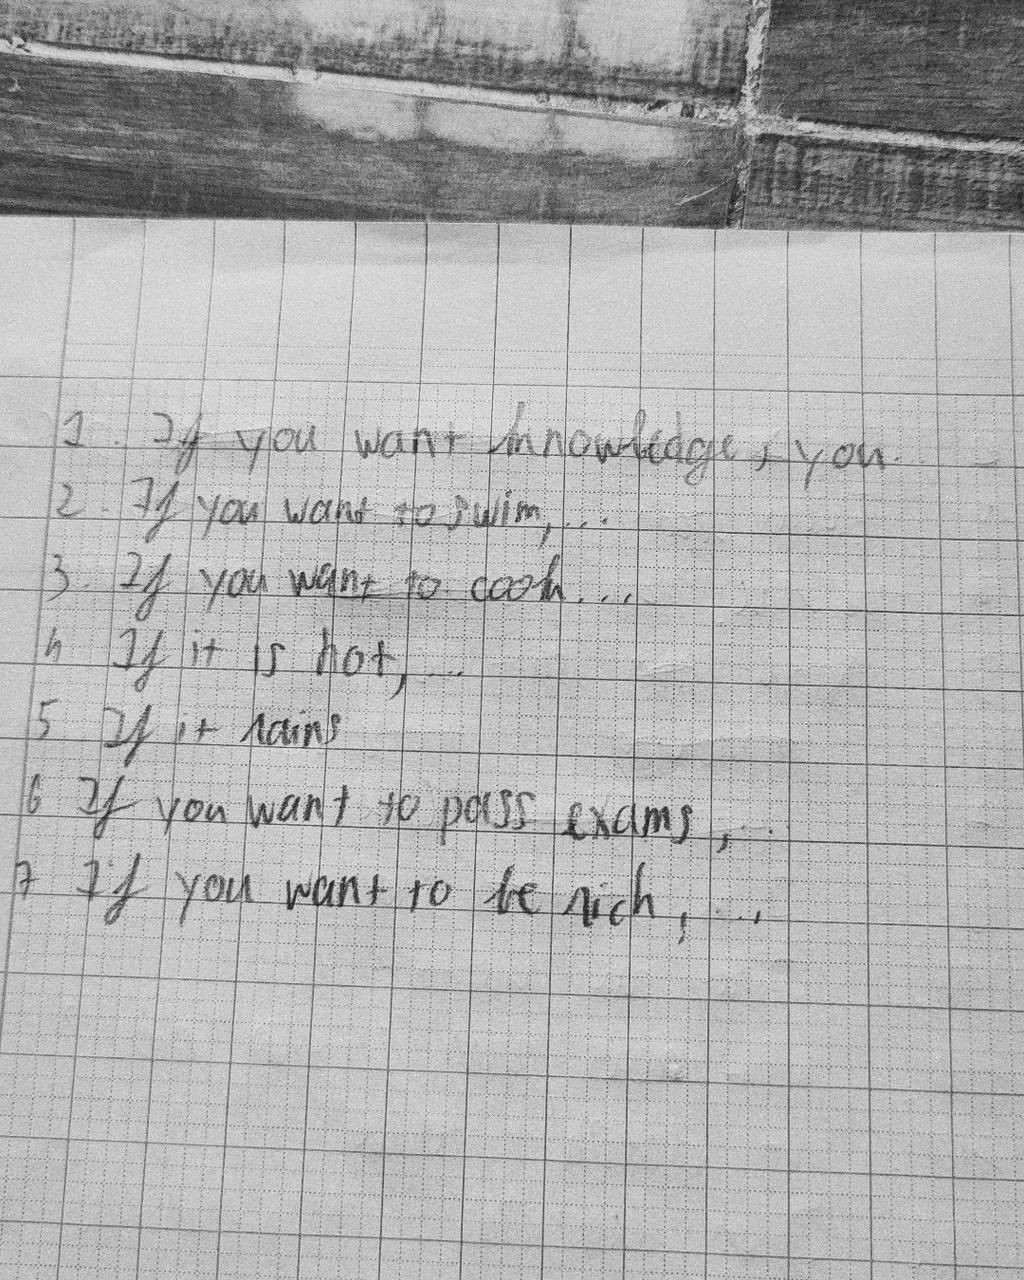 1. If you want knowledge, you... _
2. If you want to swim, ...
3. If you want to cook ...
4 If it is hot, ...
5 If it rains
6 If you want to pass exams, ...
7 If you want to be rich, ...